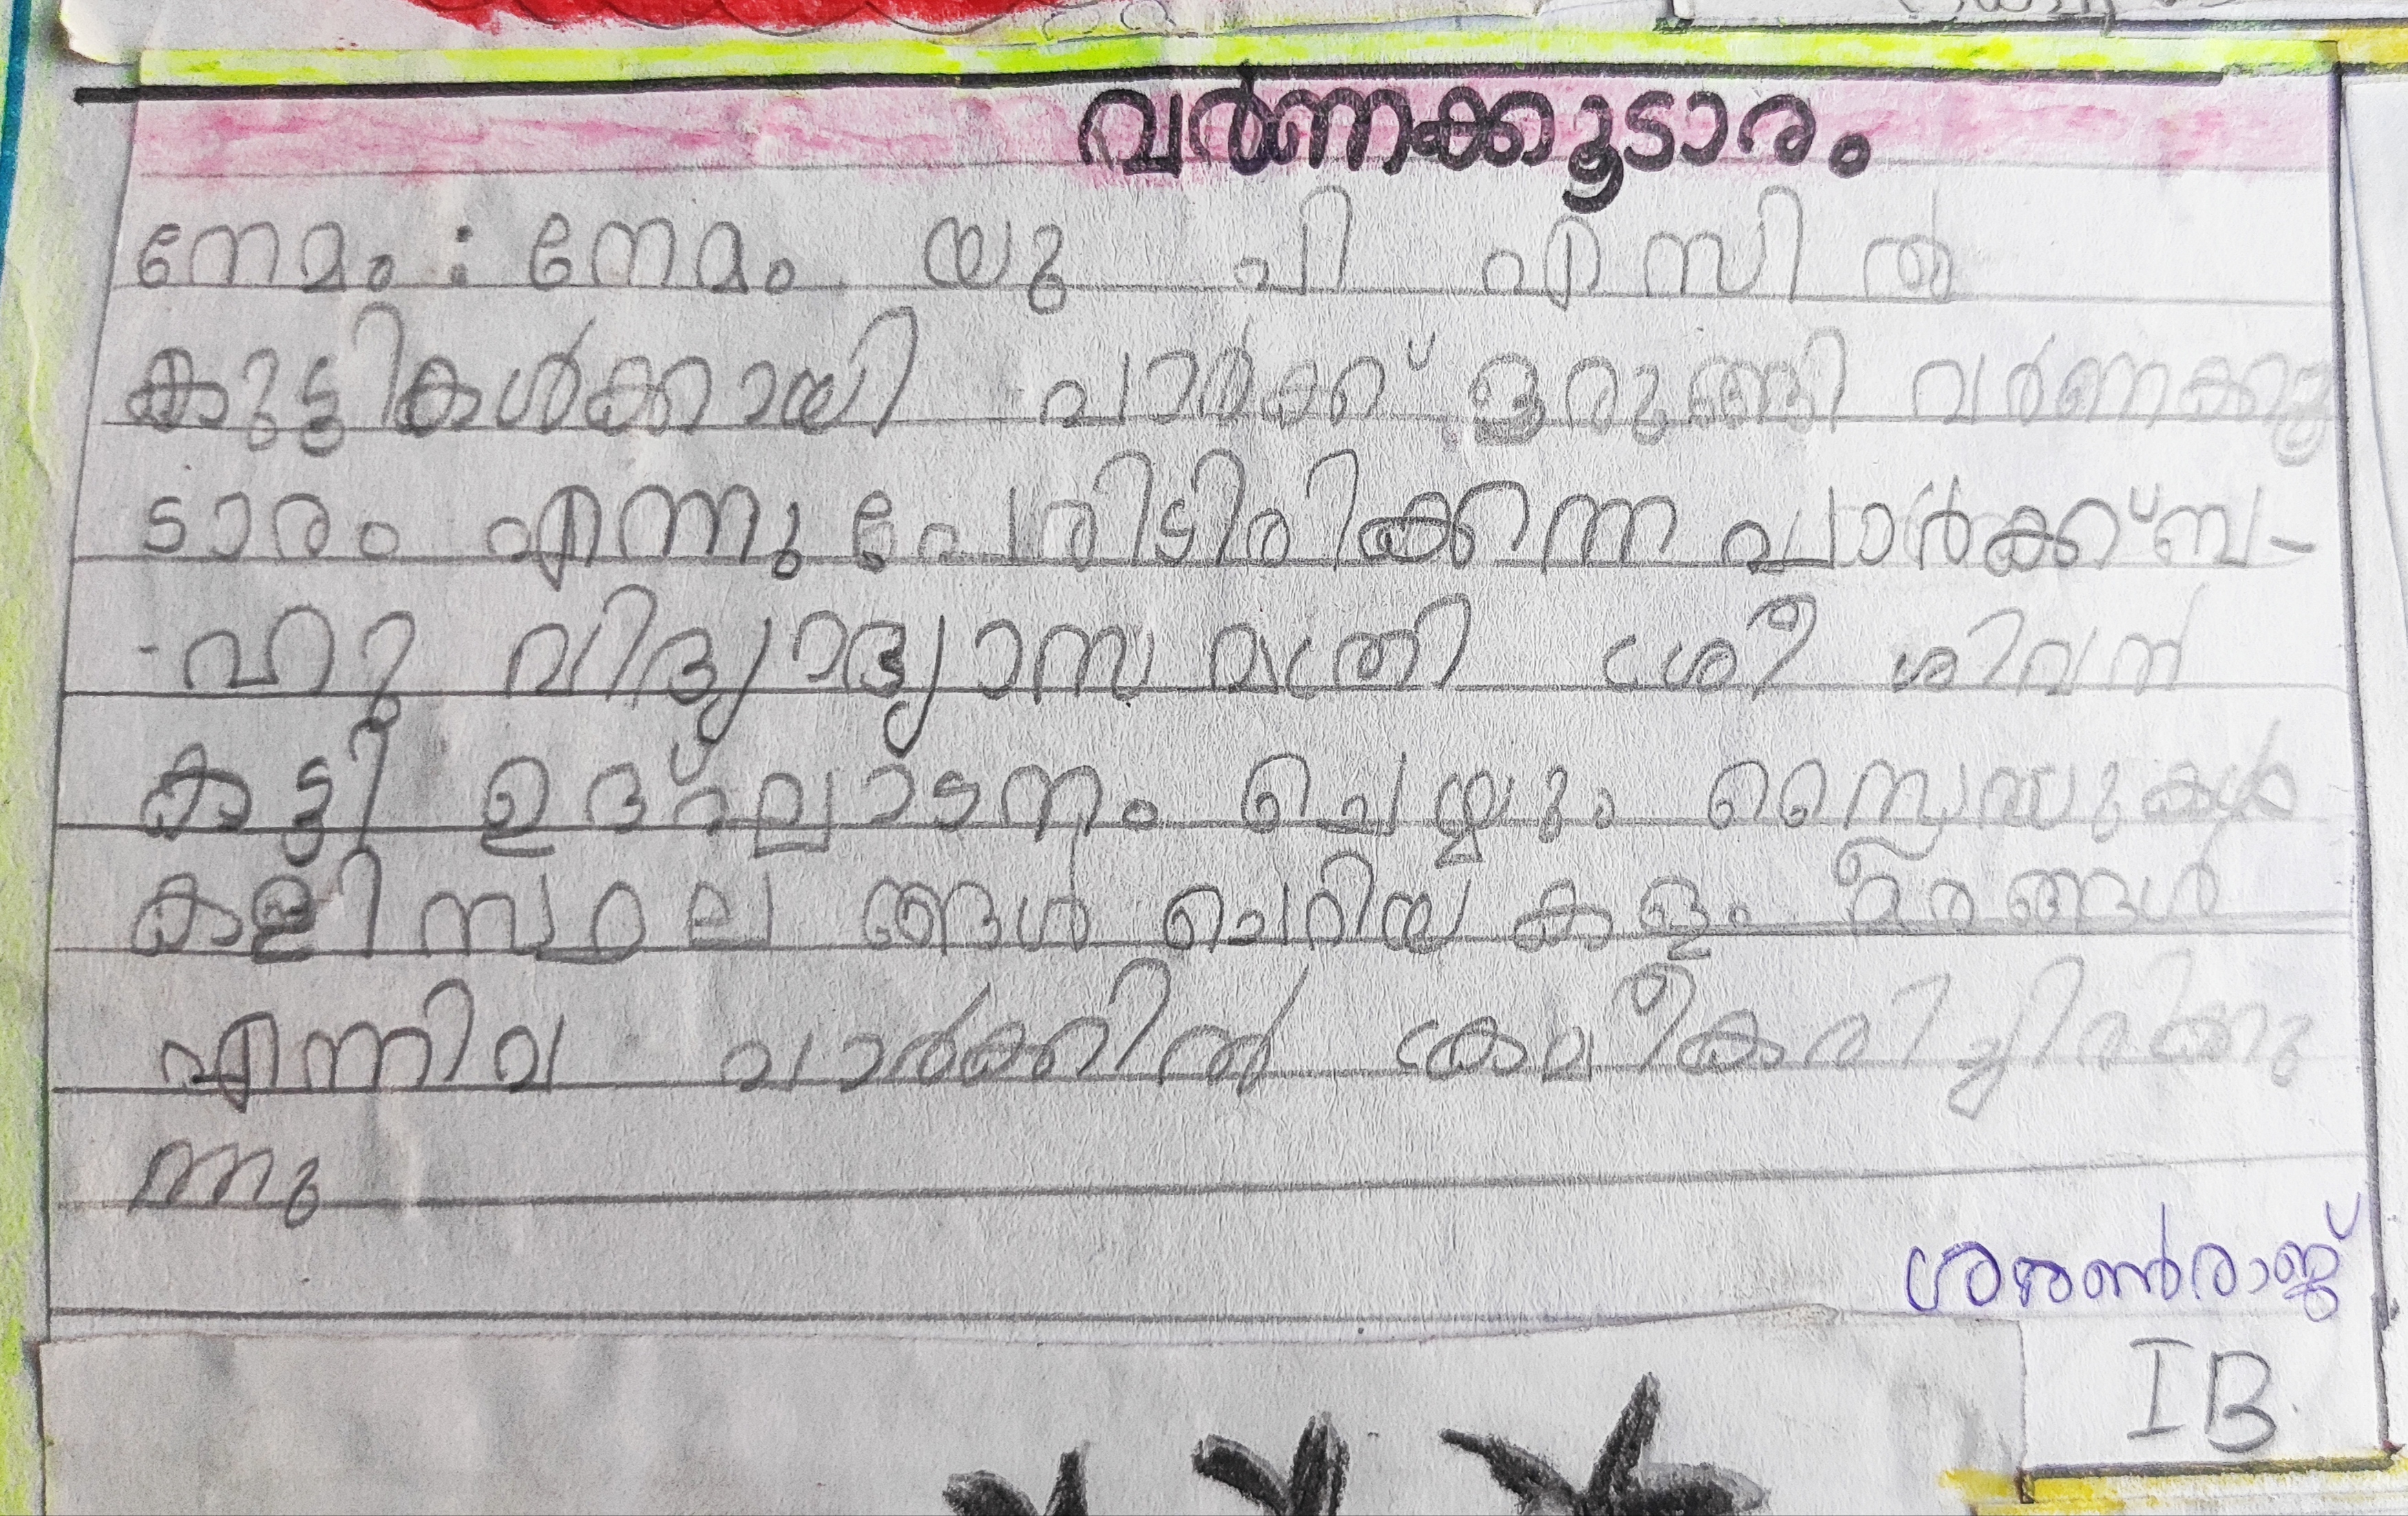 വർണക്കൂടാരം
നേമം : നേമം യു പി എസിൽ
കുട്ടികൾക്കായി പാർക്ക് ഒരുങ്ങി വർണക്കൂ
ടാരം എന്നു പേരിടിരിക്കന്ന പാർക്ക് ബ-
-ഹു വിദ്യാദ്യാസ മന്ത്രി ശ്രീ ശിവൻ
കുട്ടി ഉദ്ഘാടനം ചെയ്യും റൈഡുകൾ
കളിസ്ഥലങ്ങൾ ചെറിയ കുളം മരങ്ങൾ
എന്നിവ പാർക്കിൽ ക്രമീകരിച്ചിരിക്കു
ന്നു
ശ്രാജ്
IB